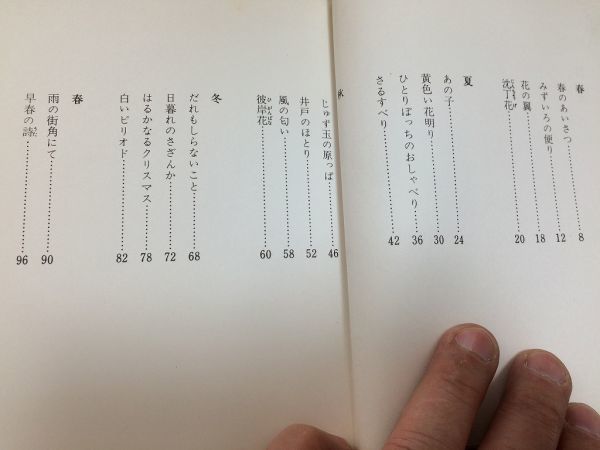 春
春のあいさつ……8
みずいろの便り……12
花の翼……18
沈丁花……20
夏
あの子……24
黄色い花明り……30
ひとりぼっちのおしゃべり……36
さるすべり……42
秋
じゅず玉の原っぱ……46
井戸のほとり……52
風の匂い……58
彼岸花……60
冬
だれもしらないこと……68
日暮れのさざんか……72
はるかなるクリスマス……78
白いピリオド……82
春
雨の街角にて……90
早春の譜……96